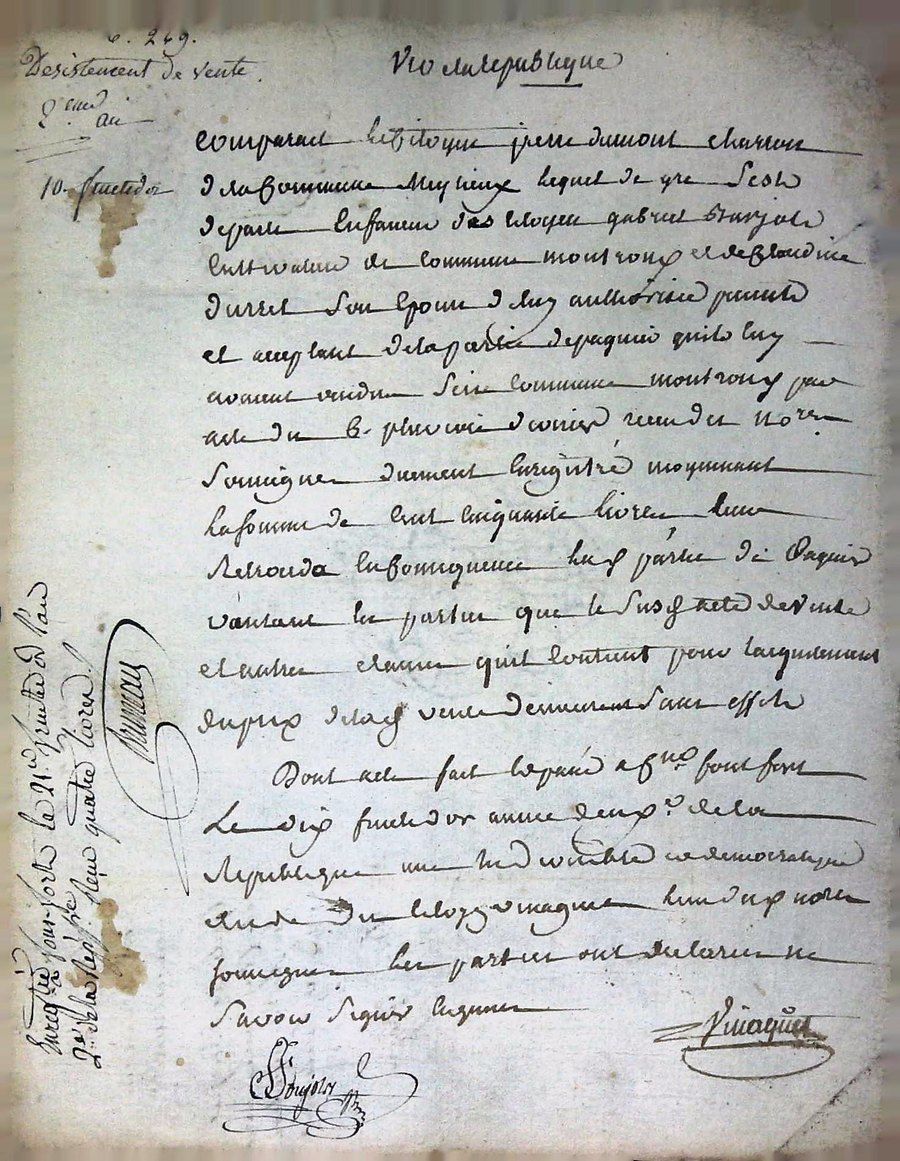 C. 249.
Desistement de vente.
2eme an
10 fructidor
Vive la republique
comparait le Citoyen pierre dumont charron
de la Commune Meylieux lequel de gré sest
departi En faveur des Citoyen gabriel
Cultivateur de Commune montrony et de Claudine
durret Son Epouse de luy authorisée presents
et acceptant de la partie de paquier quils luy
avoient vendue Scise Commune montrony par
acte du 6 pluviose dernier receu des nores
Soussignes duement Enregistré moyennant
la somme de Cent Cinquante livres leur
En Consequence lad partie de Paquier
les parties que le Susd acte de vente
et autres clauses quil Contient pour lacquittement
du prix de lad vente demeurent Sans effets
Dont acte fait lu passé a font fort
Le dix fructidor année deuxe de la
Republique une indivisible et democratique
etude du Citoyen vinagues lun des nores
soussignes les parties ont declarées ne
Savoir Signer Enquises
Vinagues
Enregistré à font-forts le 21 fructidor l'an
2e de la rep. fse Reçu quatre livres